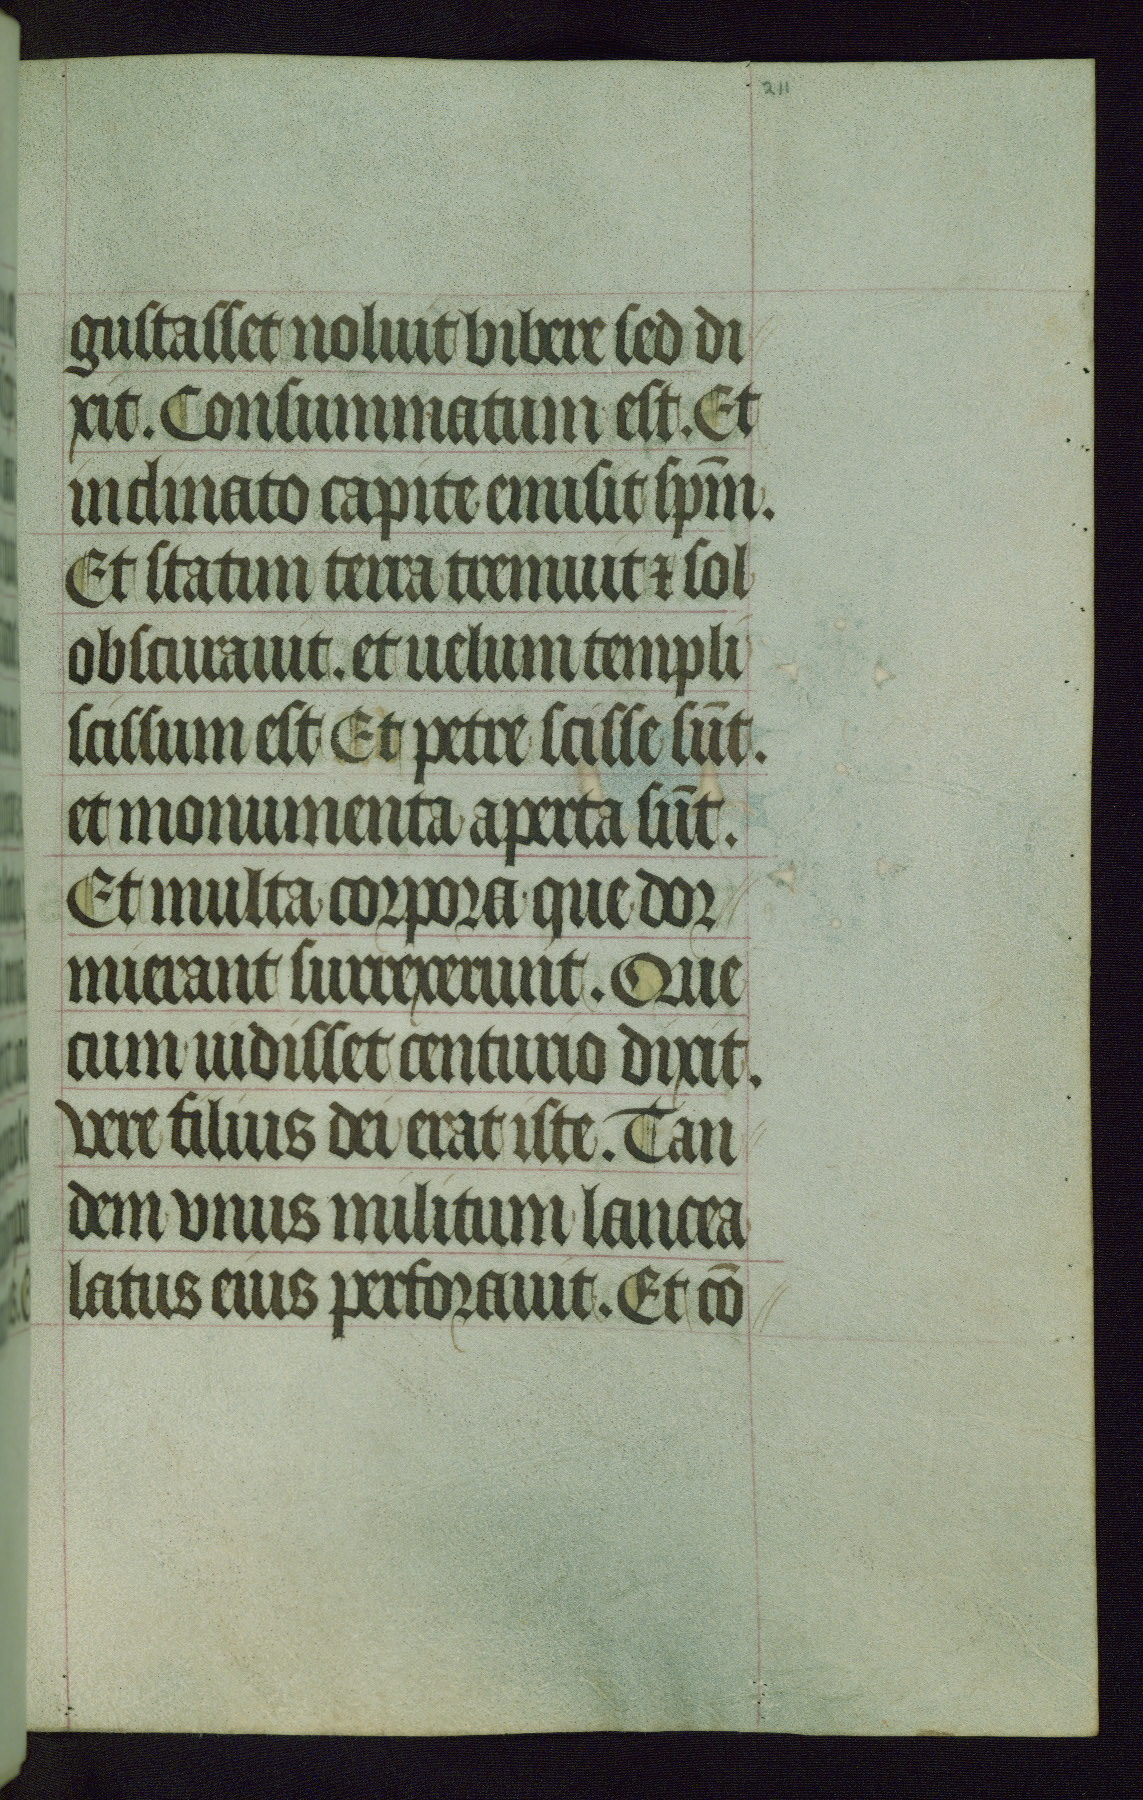 211
gustasset noluit bibere sed di
xit. Consummatum est. Et
inclinato capite emisit sp̄m.
Et statim terra tremuit ⁊ sol
obscurauit. et uelum templi
scissum est Et petre scisse sūt.
et monumenta aperta sūt.
Et multa corpora que dor
mierant surrexerunt. Que
cum uidisset centurio dixit.
vere filius dei erat iste. Tan
dem vnus militum lancea
latus eius perforauit. Et cō